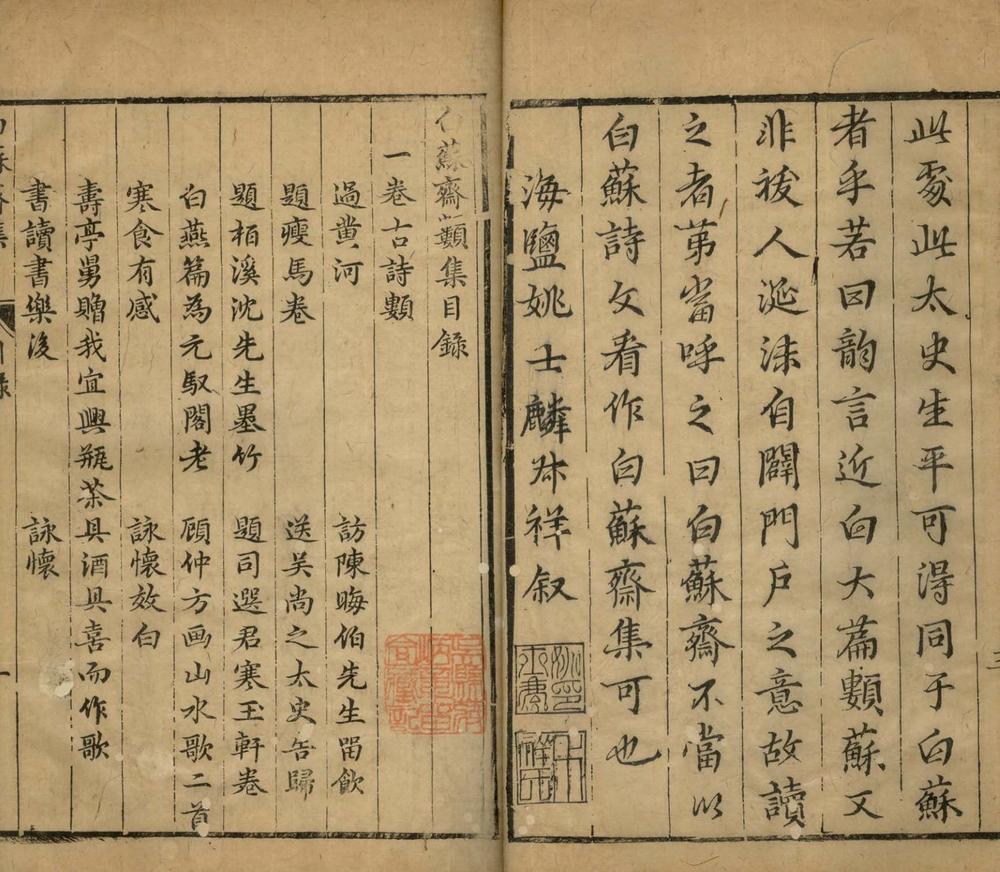 此處此太史生平可得同于白蘇
者乎若曰韵言近白大篇類蘇又
非祓人涎沫自闢門戶之意故讀
之者苐當呼之曰白蘇齋不當以
白蘇詩文看作白蘇齋集可也
海鹽姚士麟叔祥叙
白蘇齋類集目録
一卷古詩類
過黄河 訪陳晦伯先生留飲
題瘦馬卷 送吴尚之太史告歸
題栢溪沈先生墨竹 題司選君寒玉軒卷
白燕篇為元馭閣老 顧仲方画山水歌二首
寒食有感 詠懷效白
壽亭舅贈我宜興瓶茶具酒具喜而作歌
書讀書樂後 詠懷